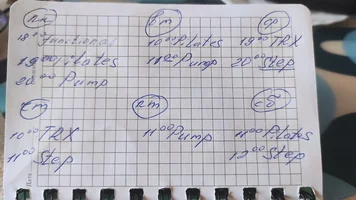 пн
18⁰⁰ Functional
19⁰⁰ Pilates
20⁰⁰ Pump
вт
10⁰⁰ Pilates
11⁰⁰ Pump
ср
19⁰⁰ TRX
20⁰⁰ Step
чт
10⁰⁰ TRX
11⁰⁰ Step
пт
11⁰⁰ Pump
сб
11⁰⁰ Pilates
12⁰⁰ Step